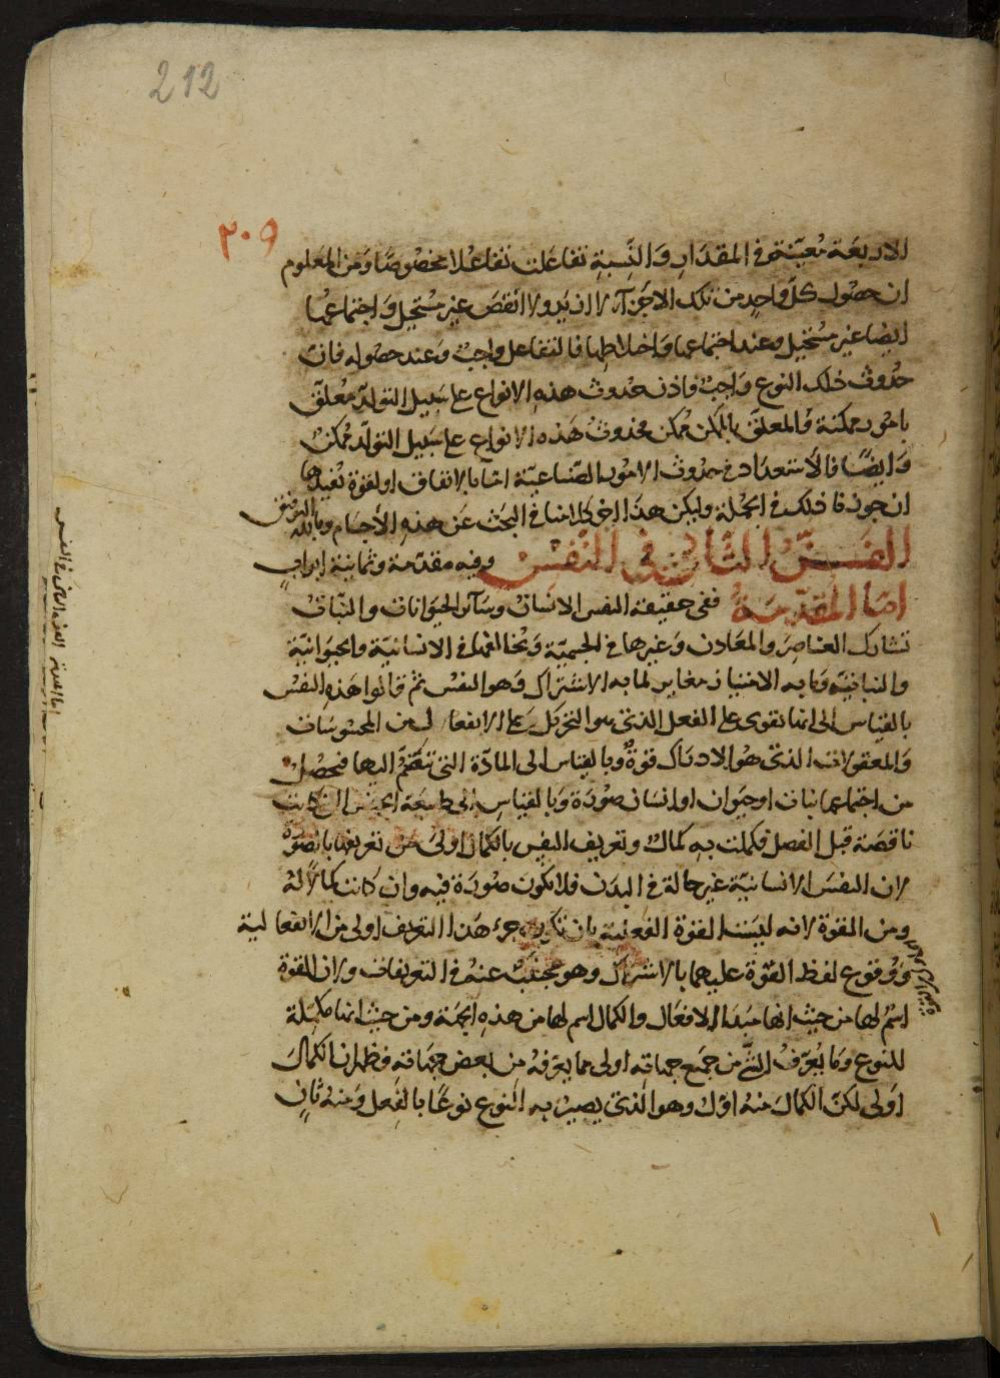 212
٢٠٩
الاربعة معينة في المقدار والنسبة تفاعلت تفاعلا مخصوصا ومن المعلوم
ان حصول كل واحد من تلك الاجزاء لا ازيد ولا انقص غير مستحيل واجتماعها
ايضا غير مستحيل وعند اجتماعها واختلاطها فالتفاعل واجب وعند حصوله فان
حدوث ذلك النوع واجب فاذن حدوث هذه الانواع على سبيل التولد معلق
بامور ممكنة والمعلق بالممكن ممكن فحدوث هذه الانواع على سبيل التولد ممكن
وايضا فالاستعداد في حدوث الامور الصناعية اما بالاتفاق او لقوة تفيدها
ان جوزنا ذلك في الجملة وليكن هذا اخر كلامنا في البحث عن هذه الاجسام وبالله التوفيق
الفن الثانى فى النفس وفيه مقدمة وثمانية ابواب
اما المقدمة ففى حقيقة النفس الانسان وسائر الحيوانات والنبات
تشارك العناصر والمعادن وغيرها في الجسمية وتخالفها في الانسانية والحيوانية
والنباتية وما به الامتياز مغاير لما به الاشتراك وهو النفس ثم قالوا هذه النفس
بالقياس الى انها تقوى على الفعل الذى هو التحريك وعلى الانفعال من المحسوسات
والمعقولات الذى هو الادراك قوة وبالقياس الى المادة التى تنضم اليها فيحصل
من اجتماعهما نبات او حيوان او انسان صورة وبالقياس الى طبيعة الجنس التى كانت
ناقصة قبل الفصل فكملت به كمال وتعريف النفس بالكمال اولى من تعريفها بالصورة
لان النفس الانسانية غير حالة في البدن فلا تكون صورة فيه وان كانت كمالا له
ومن القوة لانه ليست القوة الفعلية بان تكون جزء هذا التعريف اولى من الانفعالية
ووقوع لفظ القوة عليهما بالاشتراك وهو مجتنب عنه في التعريفات ولان القوة
اسم لها من حيث انها مبدا الافعال والكمال اسم لها من هذه الجهة ومن حيث انها مكملة
للنوع وما يعرف الشئ من جميع جهاته اولى مما يعرفه من بعض جهاته فظهر ان الكمال
اولى لكن الكمال منه اول وهو الذى يصير به النوع نوعا بالفعل ومنه ثان